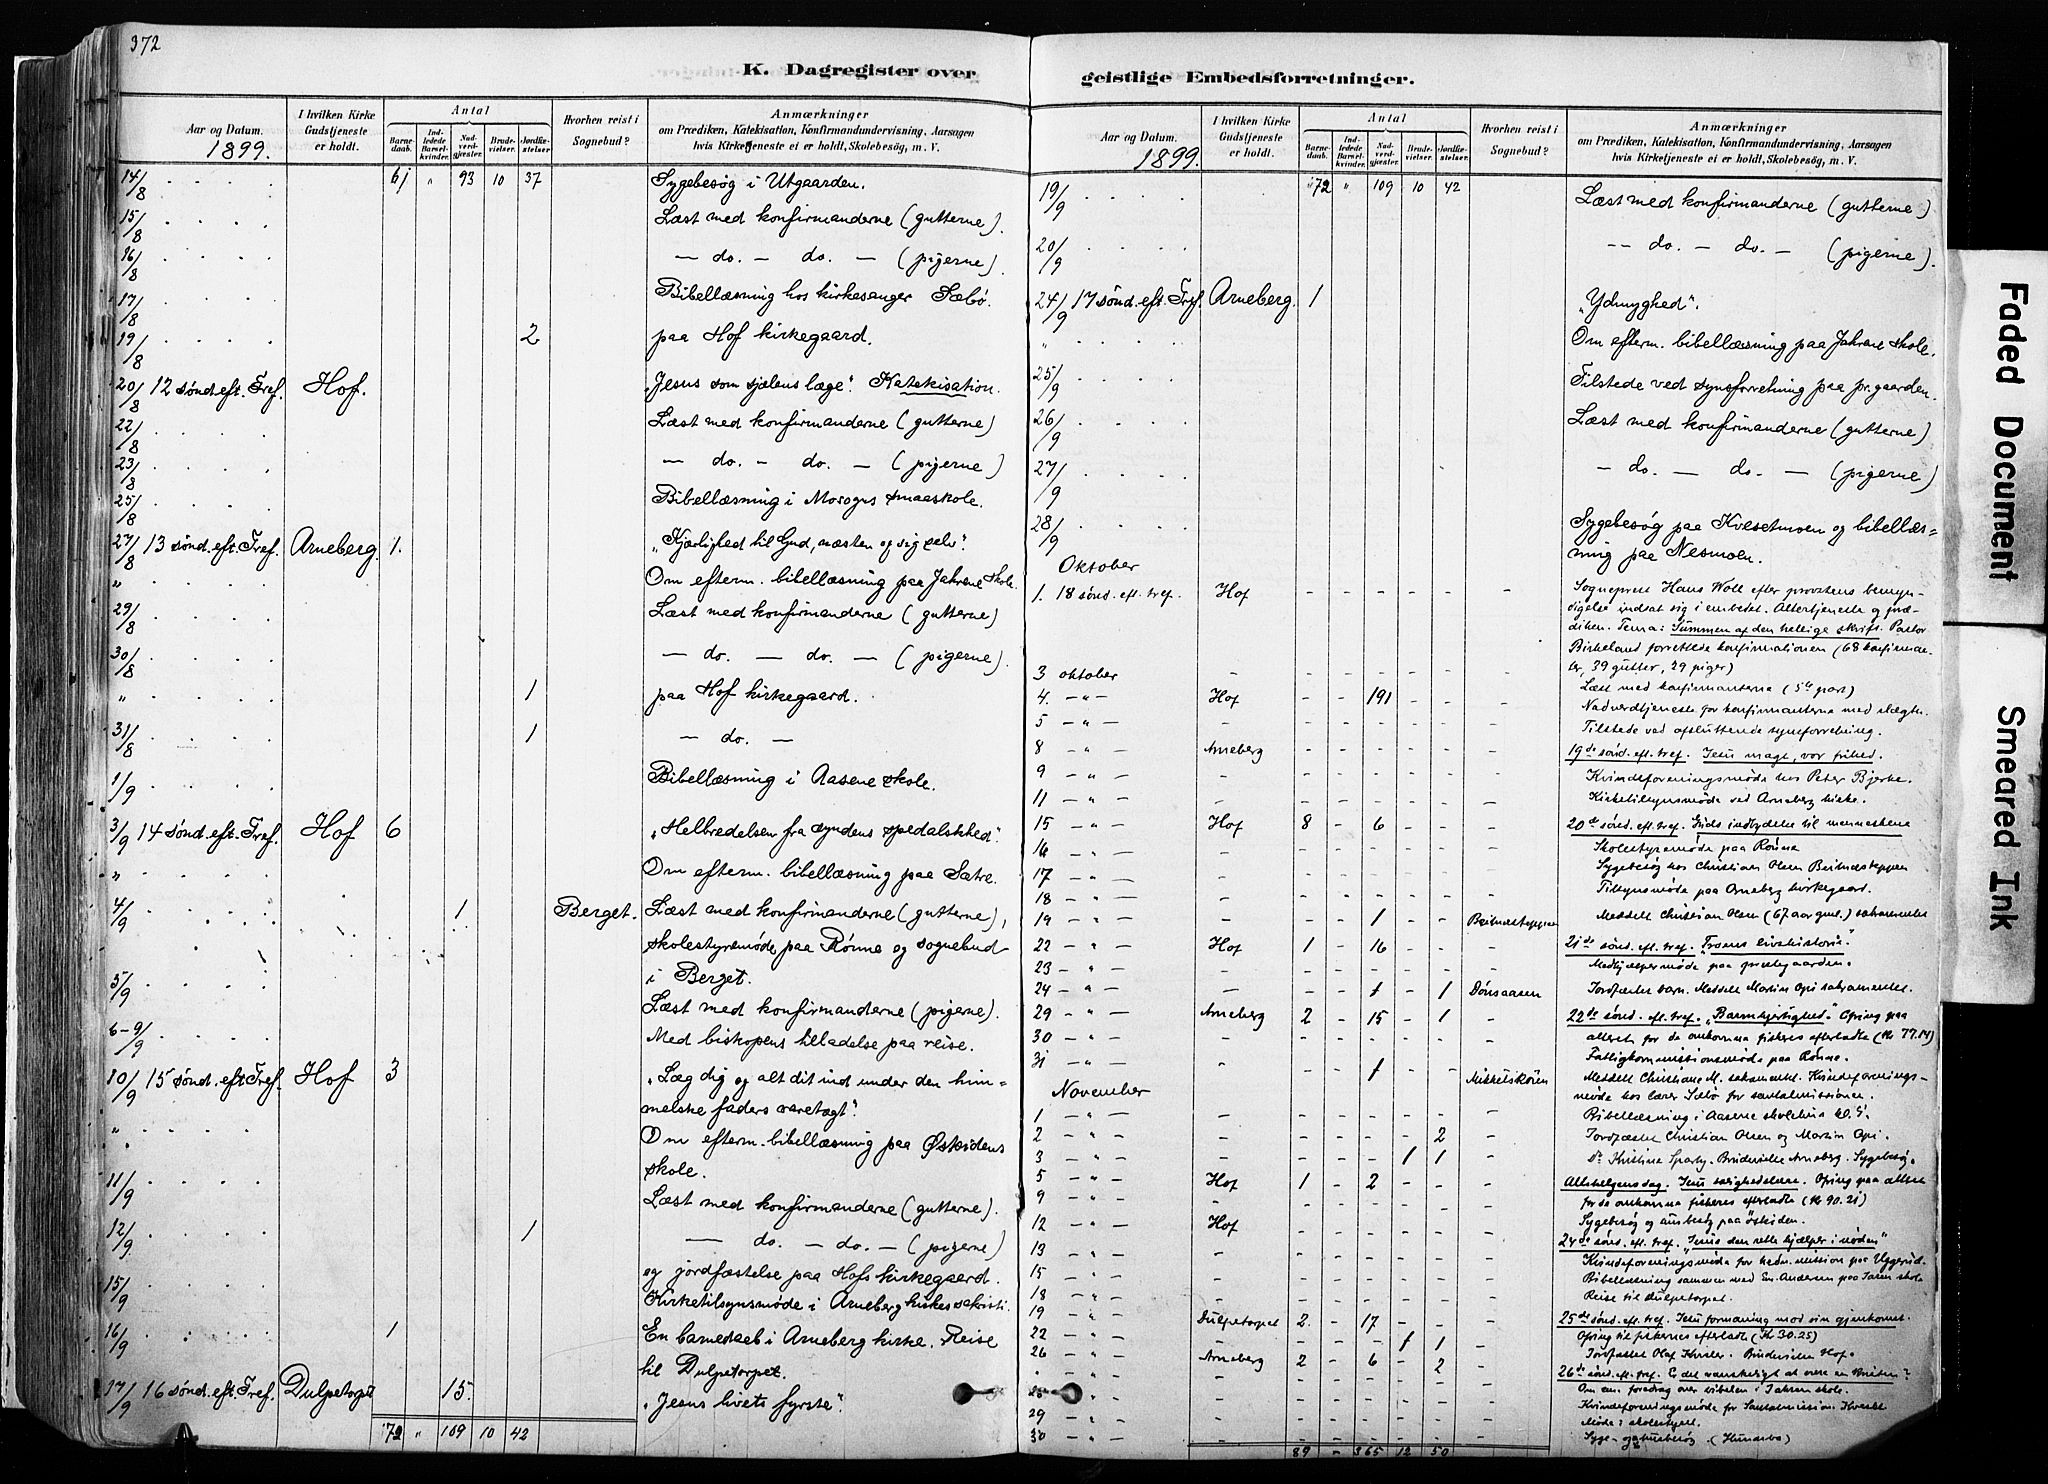 372
K. Dagregister over
Aar og Datum.
1899.
I hvilken Kirke Gudstjeneste er holdt.
Antal
Barnedaab.
Indledede Barselkvinder.
Nadverdgjester.
Brudevielser.
Jordfæstelser
Hvorhen reist i Sognebud?
Anmærkninger
om Prædiken, Katekisation, Konfirmandundervisning, Aarsagen
hvis Kirketjeneste ei er holdt, Skolebesøg, m. V.
14/8 61 " 93 10 37 Sygebesøg i Utgaarden.
15/8 Læst med konfirmanderne (gutterne).
16/8 — do. — do. — (pigerne).
17/8 Bibellæsning hos kirkesanger Sæbö.
19/8 2 paa Hof kirkegaard.
20/8 12 sönd. eft. Tref. Hof. „Jesus som sjælens læge". Katekisation.
22/8 Læst med konfirmanderne (gutterne)
23/8 — do. — do. — (pigerne)
25/8 Bibellæsning i Moroges smaaskole.
27/8 13 sönd. eft. Tref. Arneberg. 1. „Kjærlighed til Gud, næsten og sig selv".
" Om efterm. bibellæsning paa Jahrene skole.
29/8 Læst med konfirmanderne (gutterne)
30/8 — do. — do. — (pigerne).
" 1 paa Hof kirkegaard.
31/8 1 — do. —
1/9 Bibellæsning i Aasene skole.
3/9 14 sönd. eft. Tref. Hof 6 „Helbredelsen fra syndens spedalskhed".
" Om efterm. bibellæsning paa Sætre.
4/9 1 Berget. Læst med konfirmanderne (gutterne),
skolestyremöde paa Rönne og sognebud
i Berget.
5/9 Læst med konfirmanderne (pigerne).
6-9/9 Med biskopens tilladelse paa reise.
10/9 15 sönd. eft. Tref. Hof 3 „Læg dig og alt dit ind under den him-
melske faders varetægt".
" Om efterm. bibellæsning paa Østsidens
skole.
11/9 Læst med konfirmanderne (gutterne).
12/9 1 — do. — do. — (pigerne)
og jordfæstelse paa Hofs kirkegaard.
15/9 Kirketilsynsmöde i Arneberg kirkes sakristi.
16/9 1 En barnedaab i Arneberg kirke. Reise
til Dulpetorpet.
17/9 16 sönd. eft. Tref. Dulpetorpet 15. „Jesus livets fyrste".
72 " 109 10 42
geistlige Embedsforretninger.
Aar og Datum.
1899.
I hvilken Kirke Gudstjeneste er holdt.
Antal
Barnedaab.
Indledede Barselkvinder.
Nadverdgjester.
Brudevielser.
Jordfæstelser.
Hvorhen reist i Sognebud?
Anmærkninger
om Prædiken, Katekisation, Konfirmandundervisning, Aarsagen
hvis Kirketjeneste ei er holdt, Skolebesøg, m. V.
19/9 72 " 109 10 42 Læst med konfirmanderne (gutterne)
20/9 — do. — do. — (pigerne).
24/9 17 sönd. eft. Tref. Arneberg. 1 „Ydmyghed".
" Om efterm. bibellæsning paa Jahrene skole.
25/9 Tilstede ved synsforretning paa pr.gaarden.
26/9 Læst med konfirmanderne (gutterne)
27/9 — do. — do. — (pigerne)
28/9 Sygebesøg paa Kvesetmoen og bibellæs-
ning paa Nesmoen.
Oktober
1. 18 sönd. eft. tref. Hof Sogneprest Hans Woll efter provstens bemyn-
digelse indsat sig i embedet. Altertjeneste og præ-
diken. Tema: Summen af den hellige skrift. Pastor
Birkeland forrettede konfirmationen (68 konfirman-
ter, 39 gutter, 29 piger)
3 oktober Læst med konfirmanterne (5te part)
4. — " — Hof 191 Nadverdtjeneste for konfirmanterne med slægtn.
5 — " — Tilstede ved afsluttende synforretning.
8 — " — Arneberg 19de sönd. eft. tref. Jesu magt, vor frihed.
9 — " — Kvindeforeningsmöde hos Peter Bjerke.
11 — " — Kirketilsynsmöde ved Arneberg kirke.
15 — " — Hof 8 - 6 20de sönd. eft. tref. Guds indbydelse til menneskene
16 — " — Skolestyremöde paa Rönne
17 — " — Sygebesög hos Christian Olsen
18 — " — Tilsynsmöde paa Arneberg kirkegaard.
19 — " — 1 Meddelt Christian Olsen (67 aar gml.) sakramentet
22 — " — Hof 1 - 16 21de sönd. eft. tref. „Troens livshistorie".
23 — " — Medhjælpermöde paa prestegaarden.
24 — " — 1 - 1 Dönsaasen Jordfæstet barn. Meddelt Martin Opi sakramentet.
29 — " — Arneberg 2 - 15 - 1 22de sönd. eft. tref. „Barmhjertighed". Ofring paa
30 — " — alteret for de omkomne fiskeres efterladte (Kr 77.14)
31 — " — Fattigkommissionsmöde paa Rönne.
1 Mikkelskören Meddelt Christiane M. sakramentet. Kvindeforenings-
November möde hos lærer Sæbö for santalmissionen.
1 — " — Bibellæsning i Aasene skolehus kl. 5.
2 — " — 2 Jordfæstet Christian Olsen og Martin Opi.
3 — " — 1 1 Do Kristine Sparby. Brudevielse Arneberg. Sygebesög.
5 — " — Hof 1 - 2 Allehelgensdag. Jesu salighedslære. Ofring paa alteret
9 — " — for de omkomne fiskeres efterladte (Kr 90.21)
12 — " — Hof Sygebesög og paa östsiden.
13 — " — 24de sönd. eft. tref. „Jesus den rette hjælper i nöden"
15 — " — Kvindeforeningsmöde for hedn.mission paa Uggerud.
18 — " — Bibellæsning sammen med Em. Andersen paa Jaren skole
Reise til Dulpetorpet.
19 — " — Dulpetorpet 2. - 17 25de sönd. eft. tref. Jesu formaning mod sin gjenkomst.
22 — " — 1 1 Ofring til fiskernes efterladte (Kr 30.25)
26 — " — Arneberg 2 - 6 - 2 Jordfæstet Olaf . Brudevielse Hof.
26de sönd. eft. tref. Er det vanskeligt at være en kristen?
Om em. foredrag over bibelen i Jahren skole.
29 — " — Kvindeforeningsmöde for Santalmission
Möde i skolestyret.
30 — " — Syge- og husbesög.
89 - 365 12 50
Faded Document
Smeared Ink